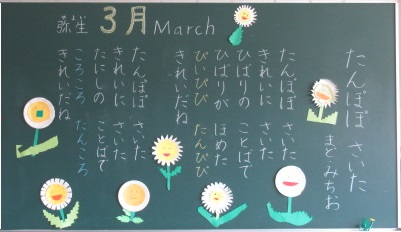 弥生 3月 March
たんぽぽ さいた
まど・みちお
たんぽぽ さいた
きれいに さいた
ひばりの ことばで
ひばりが ほめた
ぴぴぴぴ たんぴぴ
きれいだね
たんぽぽ さいた
きれいに さいた
たにしの ことばで
ころころ たんころ
きれいだね